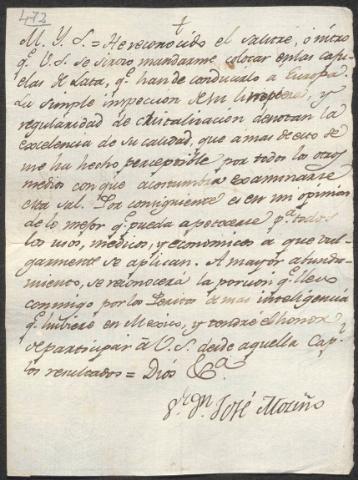 472
+
M. Y. S. = He reconocido el salitre, ó nitro
qe. V.S. se sirvio mandarme colocar en las caxi-
elas de Lata, qe. han de conducirlo a Europa.
La simple inspeccion de su limpieza, y
regularidad de cristalizacion denotan la
excelencia de su calidad, que a mas de esto se
me ha hecho perceptible por todos los otros
medios con que acostumbra examinarse
esta sal. Por consiguiente es en mi opinion
de lo mejor qe. pueda apetecerse pa. todos
los usos, medicos, y economicos a que vul-
garmente se aplican. A mayor abunda-
miento, se reconocerá la porcion qe. llevo
conmigo por los Peritos de mas inteligencia
qe. hubiere en Mexico, y tendré el honor
de participar á V.S. desde aquella Capl.
los resultados = Dios &a.
Sr. Dn. José Moziño